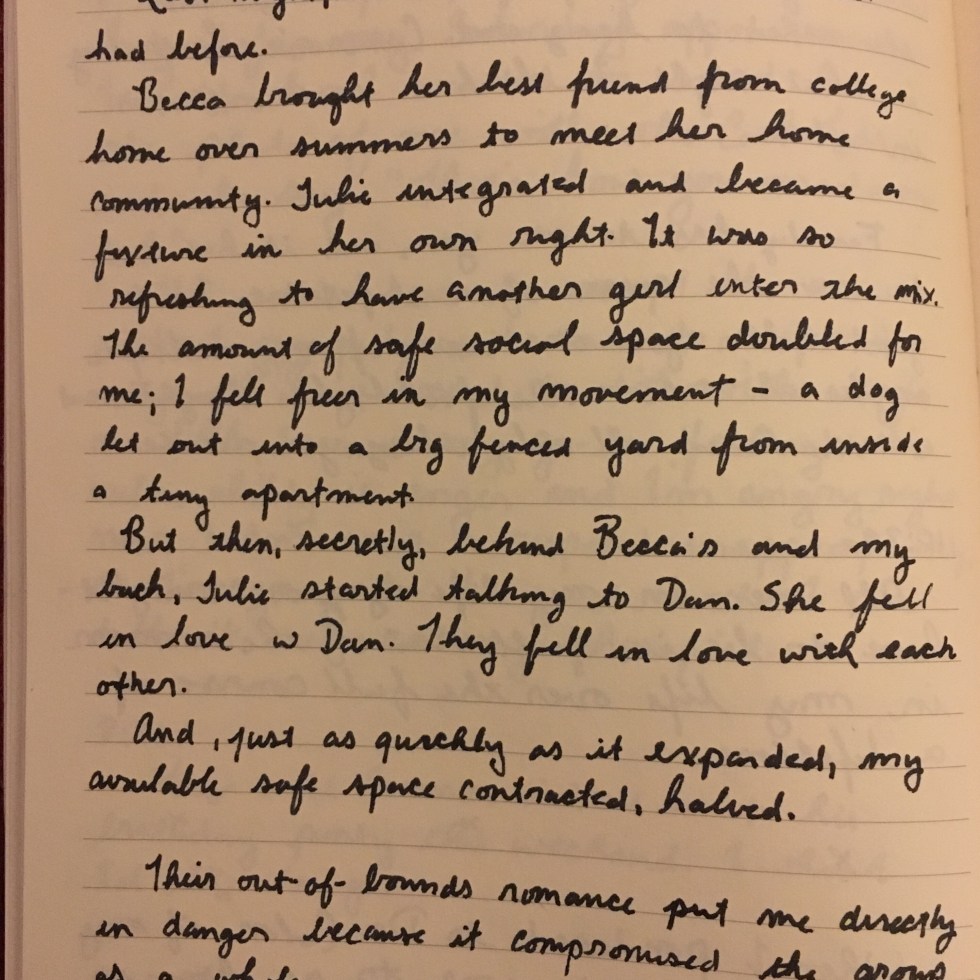 had before.
Becca brought her best friend from college
home over summers to meet her home
community. Julie integrated and became a
fixture in her own right. It was so
refreshing to have another girl enter the mix.
The amount of safe social space doubled for
me; I felt freer in my movement - a dog
let out into a big fenced yard from inside
a tiny apartment.
But then, secretly, behind Becca's and my
back, Julie started talking to Dan. She fell
in love w Dan. They fell in love with each
other.
And, just as quickly as it expanded, my
available safe space contracted, halved.
Their out-of-bounds romance put me directly
in danger because it compromised the group
as a whole